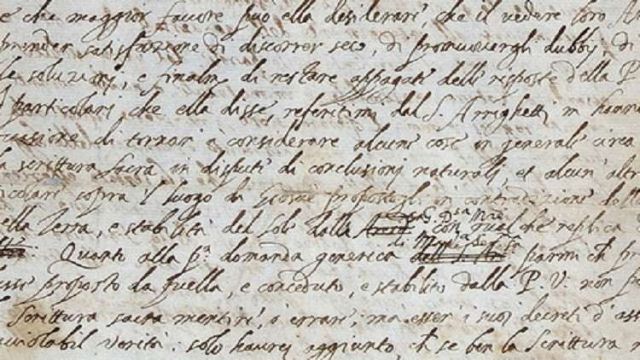 e che maggior favore può ella desiderare, che il vedere loro
prender satisfazione di discorrer seco, di promuovergli dubbij, di
le soluzioni, e finalm. di restare appagati delle risposte della P.
particolari che ella disse, referitimi dal S. Arrighetti m'hann
occasione di tornar a considerare alcune cose in generale circa
la scrittura sacra in dispute di conclusioni naturali et alcun'altr
sopra il luogo di Giosuè propostogli in contradizione
della Terra, e stabilità del Sole dalla con qualche replica
di Quanto alla p.ª domanda generica parmi ch
proposto da quella, e conceduto, e stabilito dalla P. V. non
Scrittura sacra mentire, o errare, ma esser i suoi decreti d'ass
inviolabil verità: solo haurei aggiunto ch se ben la Scrittura